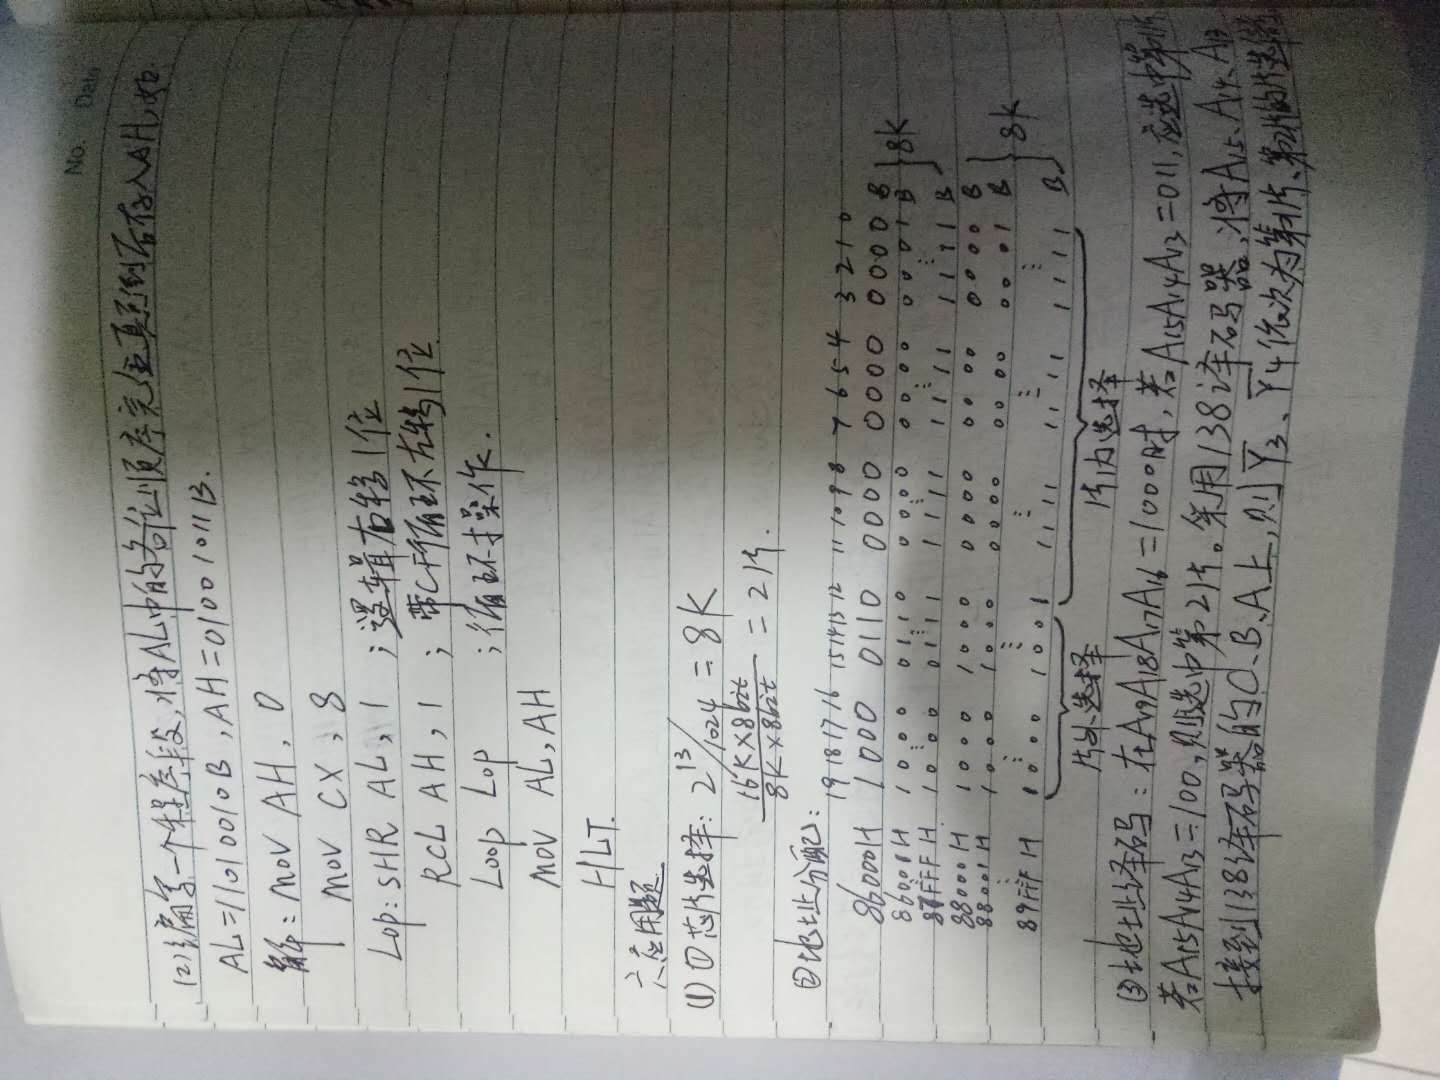 No. Date
(2)编写一个程序段,将AL中的各位顺序完全颠倒后存入AH,如.
AL=11010010B,AH=01001011B.
解:MOV AH,0
MOV CX,8
Lop:SHR AL,1 ;逻辑右移1位
RCL AH,1 ;带CF循环左移1位
Loop Lop ;循环操作.
MOV AL,AH
HLT.
六应用题
(1)①芯片选择:2^13/1024=8K
16K×8bit/8K×8bit=2片.
②地址分配:
19 18 17 16 15 14 13 12 11 10 9 8 7 6 5 4 3 2 1 0
86000H 1000 0110 0000 0000 0000 B
86001H 1000 0110 0000 0000 0001 B } 8K
87FFFH 1000 0111 1111 1111 1111 B
88000H 1000 1000 0000 0000 0000 B
88001H 1000 1000 0000 0000 0001 B
⋮ ⋮ ⋮ ⋮ ⋮ ⋮ } 8K
89FFFH 1000 1001 1111 1111 1111 B
片外选择 片内选择
③地址译码:在A19A18A17A16=1000时,若A15A14A13=011,应选中第1片
若A15A14A13=100,则选中第2片。采用138译码器,将A15、A14、A13
接到138译码器的C、B、A上,则Y̅3、Y̅4依次为第1片、第2片的片选信